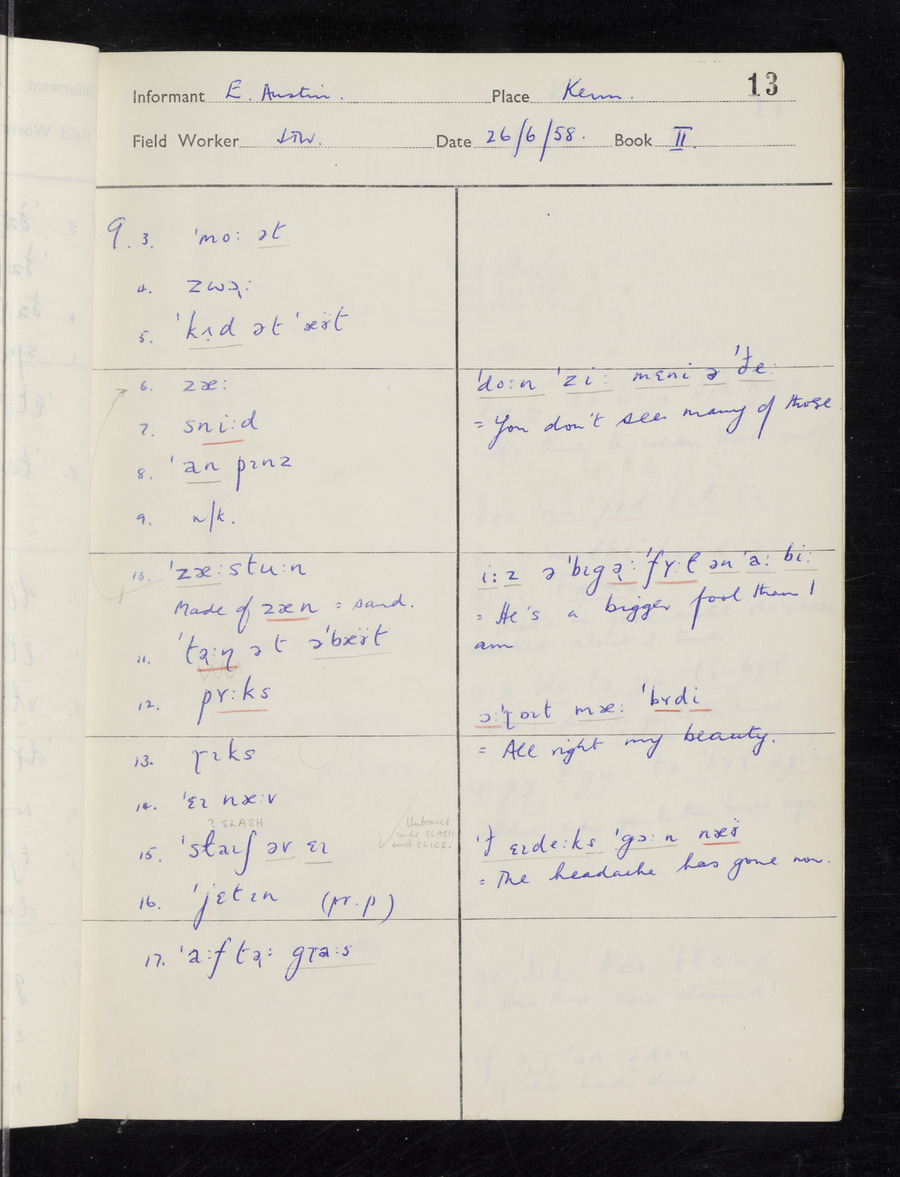 13
Informant E. Austin. Place Kenn.
Field Worker Date 26/6/58. Book II.
9. 3. ˈmoː ət
4. zwəː
5. ət
6. zæː
7. sniːd
8. ˈan pɪnz
9. n/k.
10. ˈzæːstuːn
Made of zæn = sand.
11. ət
12. prːks
13. ɽɪks
14. ˈɛɪ næːv
? SLASH
15. ˈstaɪʃ əv ɛɪ
16. ˈjɛtɪn (pr.p)
17. ˈaːftəː gɽaːs
Untraced
under SLASH
and SLICE.
ˈdoːn ˈziː mɛni ə ˈðeː
= You don't see many of those
iːz ə ən ˈaː biː
= He's a bigger fool than I
am
mæː
= All right my beauty.
ˈgɔːn
= The headache has gone now.